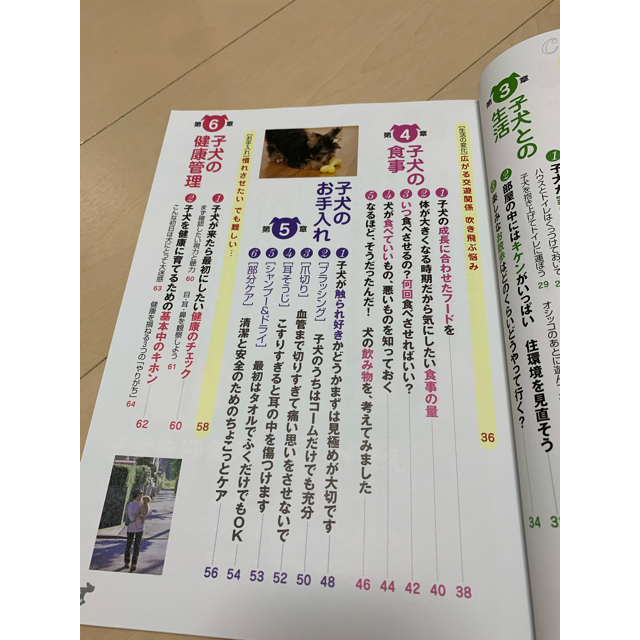 第3章
子犬との
生活
ハウスとトイレはくっつけておいて
子犬を抱き上げてトイレに運ぼう
29
オシッコのあとに遊ん
2 部屋の中にはキケンがいっぱい 住環境を見直そう
34
3 楽しみなお散歩はどのくらい、どうやって行く?
[生活の変化]広がる交遊関係 吹き飛ぶ悩み
36
第4章
子犬の
食事
1 子犬の成長に合わせたフードを
38
2 体が大きくなる時期だから気にしたい食事の量
40
3 いつ食べさせるの?何回食べさせればいい?
42
4 犬が食べていいもの、悪いものを知っておく
44
5 なるほど、そうだったんだ! 犬の飲み物を、考えてみました
46
第5章
子犬の
お手入れ
1 子犬が触られ好きかどうかまずは見極めが大切です
48
2 [ブラッシング] 子犬のうちはコームだけでも充分
50
3 [爪切り] 血管まで切りすぎて痛い思いをさせないで
52
4 [耳そうじ] こすりすぎると耳の中を傷つけます
53
5 [シャンプー&ドライ] 最初はタオルでふくだけでもOK
54
6 [部分ケア] 清潔と安全のためのちょこっとケア
56
[お手入れ]慣れさせたい でも難しい…
58
第6章
子犬の
健康管理
1 子犬が来たら最初にしたい健康のチェック
60
まず確認したい視力と聴力 60
目・耳・鼻を観察しよう 61
2 子犬を健康に育てるための基本中のキホン
62
こんな初日は犬にとって大迷惑 63
健康を損ねる3つの「やりがち」 64